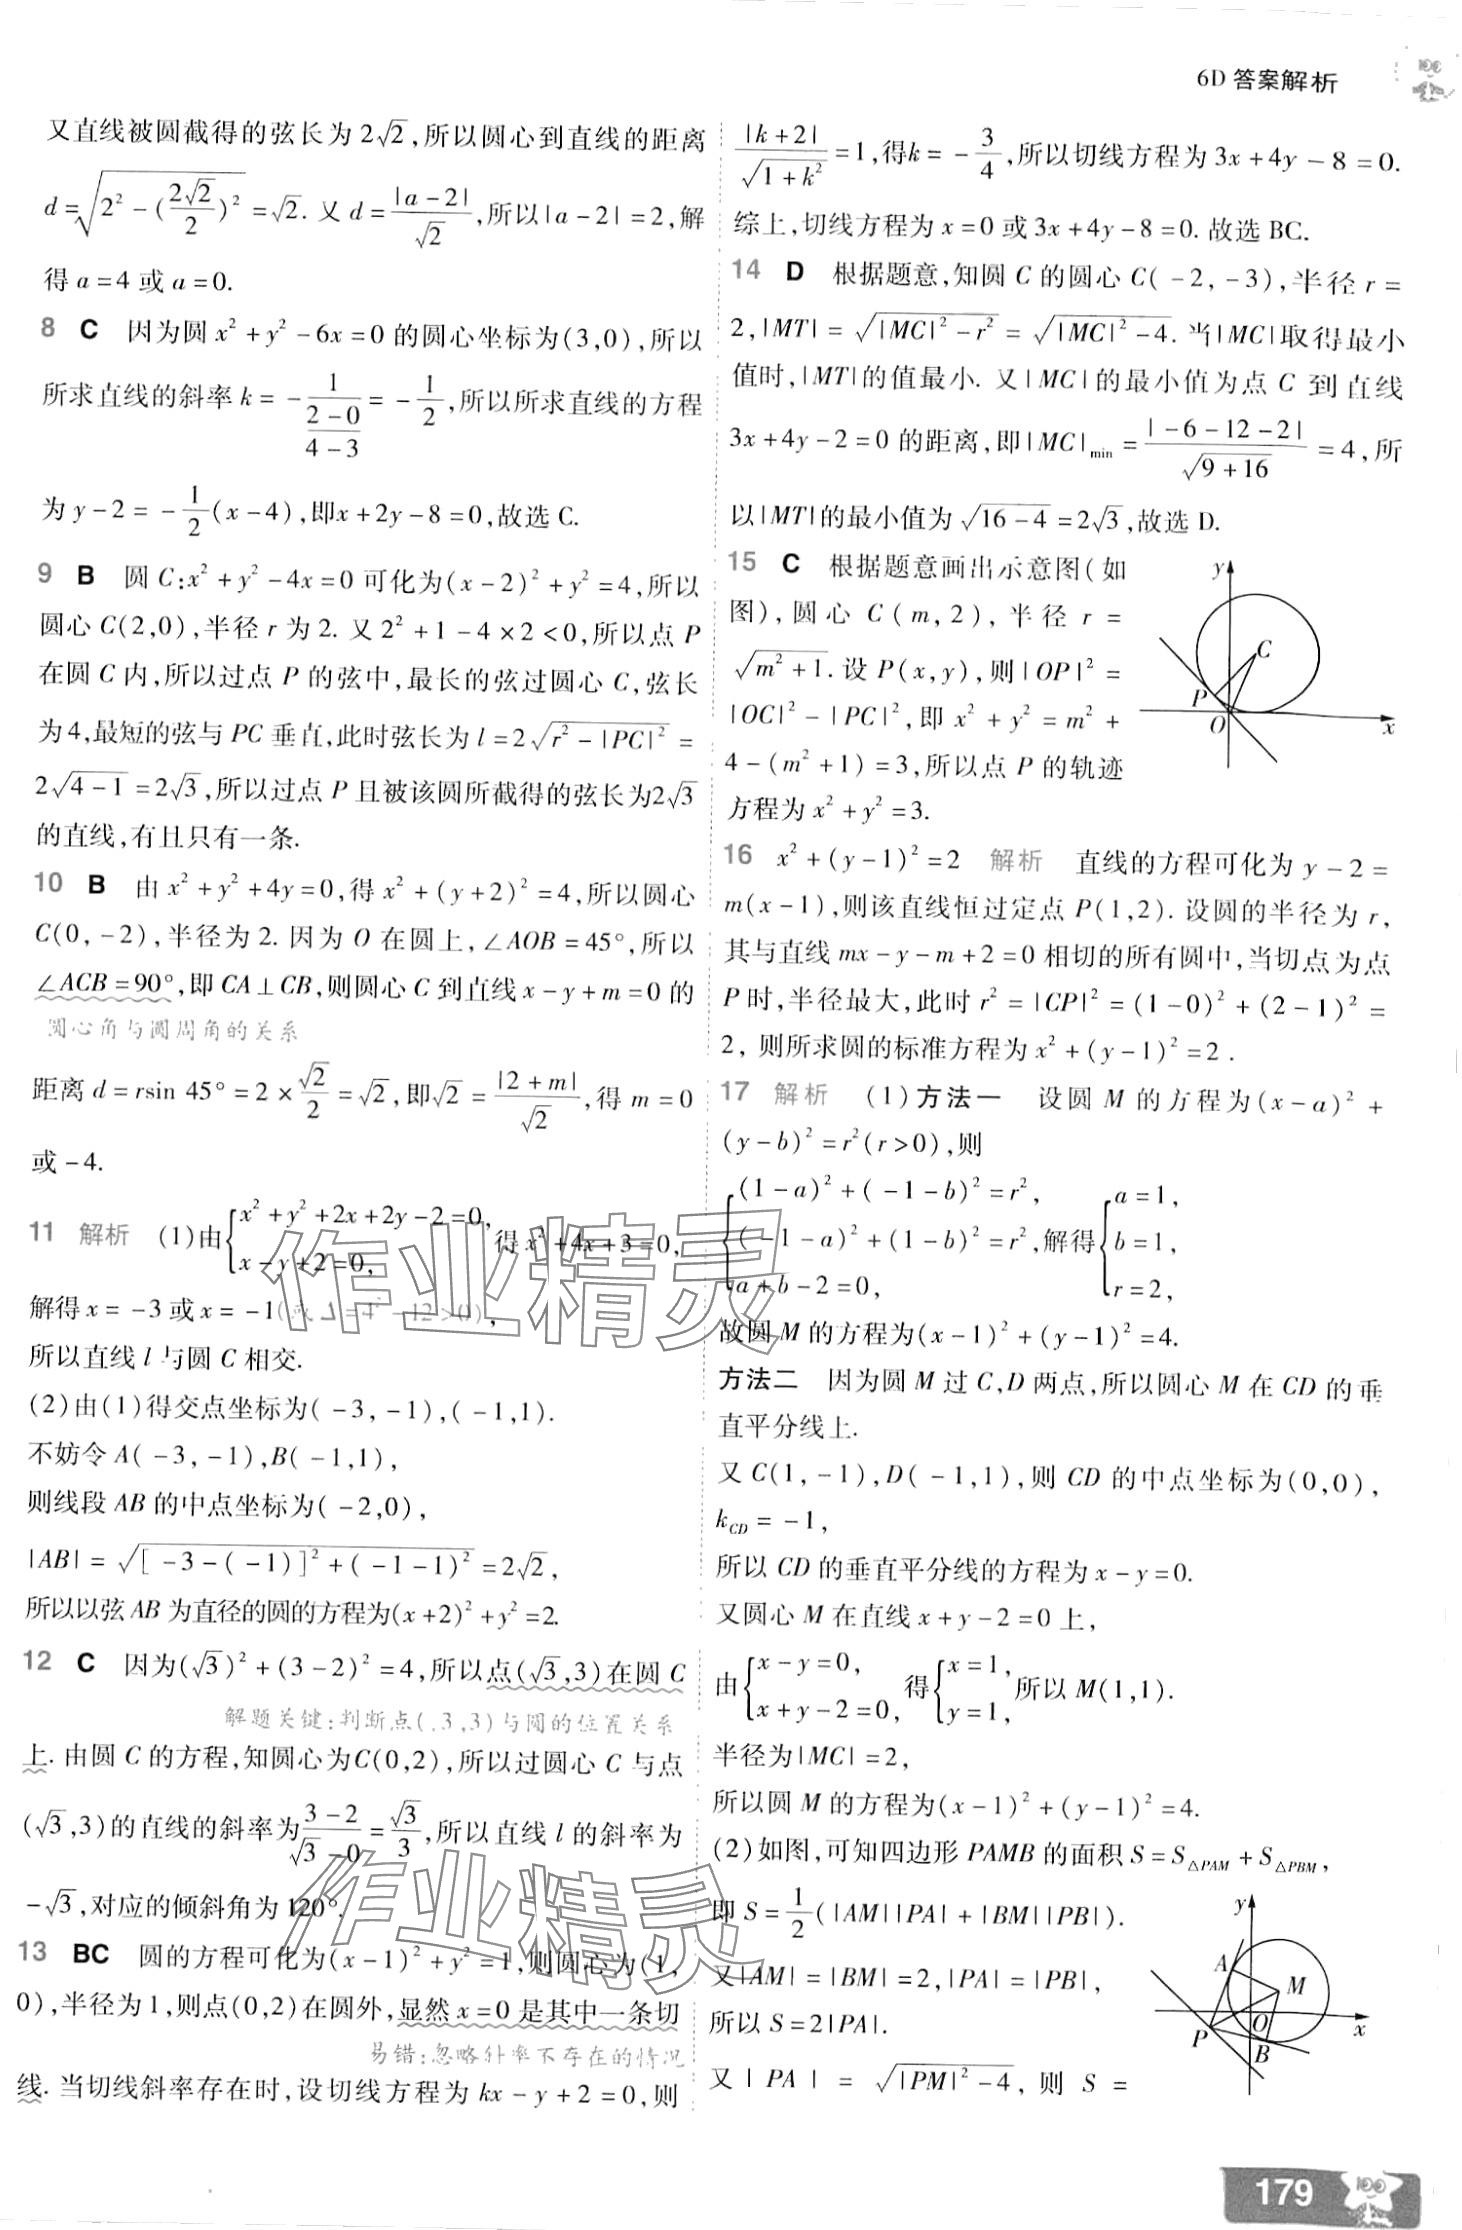 6D 答案解析
又直线被圆截得的弦长为 2√2,所以圆心到直线的距离
d=√(2²-(2√2/2)²)=√2. 又 d=|a-2|/√2,所以|a-2|=2,解
得 a=4 或 a=0.
8 C 因为圆 x²+y²-6x=0 的圆心坐标为(3,0),所以
所求直线的斜率 k=-1/((2-0)/(4-3))=-1/2,所以所求直线的方程
为 y-2=-1/2(x-4),即x+2y-8=0,故选 C.
9 B 圆 C:x²+y²-4x=0 可化为(x-2)²+y²=4,所以
圆心 C(2,0),半径 r 为 2. 又 2²+1-4×2<0,所以点 P
在圆 C 内,所以过点 P 的弦中,最长的弦过圆心 C,弦长
为 4,最短的弦与 PC 垂直,此时弦长为 l=2√(r²-|PC|²)=
2√(4-1)=2√3,所以过点 P 且被该圆所截得的弦长为2√3
的直线,有且只有一条.
10 B 由 x²+y²+4y=0,得 x²+(y+2)²=4,所以圆心
C(0,-2),半径为 2. 因为 O 在圆上,∠AOB=45°,所以
∠ACB=90°,即 CA⊥CB,则圆心 C 到直线 x-y+m=0 的
圆心角与圆周角的关系
距离 d=rsin 45°=2×√2/2=√2,即√2=|2+m|/√2,得 m=0
或-4.
11 解析 (1)由{x²+y²+2x+2y-2=0, x-y+2=0, 得 x²+4x+3=0,
解得 x=-3 或 x=-1(或 Δ=4²-12>0),
所以直线 l 与圆 C 相交.
(2)由(1)得交点坐标为(-3,-1),(-1,1).
不妨令 A(-3,-1),B(-1,1),
则线段 AB 的中点坐标为(-2,0),
|AB|=√([-3-(-1)]²+(-1-1)²)=2√2,
所以以弦 AB 为直径的圆的方程为(x+2)²+y²=2.
12 C 因为(√3)²+(3-2)²=4,所以点(√3,3)在圆 C
解题关键:判断点(√3,3)与圆的位置关系
上. 由圆 C 的方程,知圆心为C(0,2),所以过圆心 C 与点
(√3,3)的直线的斜率为(3-2)/(√3-0)=√3/3,所以直线 l 的斜率为
-√3,对应的倾斜角为 120°.
13 BC 圆的方程可化为(x-1)²+y²=1,则圆心为(1,
0),半径为 1,则点(0,2)在圆外,显然 x=0 是其中一条切
易错:忽略斜率不存在的情况
线. 当切线斜率存在时,设切线方程为 kx-y+2=0,则
|k+2|/√(1+k²)=1,得k=-3/4,所以切线方程为 3x+4y-8=0.
综上,切线方程为 x=0 或 3x+4y-8=0. 故选 BC.
14 D 根据题意,知圆 C 的圆心 C(-2,-3),半径 r=
2,|MT|=√(|MC|²-r²)=√(|MC|²-4). 当|MC|取得最小
值时,|MT|的值最小. 又|MC|的最小值为点 C 到直线
3x+4y-2=0 的距离,即|MC|min=|-6-12-2|/√(9+16)=4,所
以|MT|的最小值为√(16-4)=2√3,故选 D.
15 C 根据题意画出示意图(如
图),圆心 C(m,2),半径 r=
√(m²+1). 设 P(x,y),则|OP|²=
|OC|²-|PC|²,即 x²+y²=m²+
4-(m²+1)=3,所以点 P 的轨迹
方程为 x²+y²=3.
y
C
P
O
x
16 x²+(y-1)²=2 解析 直线的方程可化为 y-2=
m(x-1),则该直线恒过定点 P(1,2). 设圆的半径为 r,
其与直线 mx-y-m+2=0 相切的所有圆中,当切点为点
P 时,半径最大,此时 r²=|CP|²=(1-0)²+(2-1)²=
2, 则所求圆的标准方程为 x²+(y-1)²=2.
17 解析 (1)方法一 设圆 M 的方程为(x-a)²+
(y-b)²=r²(r>0),则
{(1-a)²+(-1-b)²=r², (-1-a)²+(1-b)²=r², a+b-2=0, 解得{a=1, b=1, r=2,
故圆 M 的方程为(x-1)²+(y-1)²=4.
方法二 因为圆 M 过 C,D 两点,所以圆心 M 在 CD 的垂
直平分线上.
又 C(1,-1),D(-1,1),则 CD 的中点坐标为(0,0),
kCD=-1,
所以 CD 的垂直平分线的方程为 x-y=0.
又圆心 M 在直线 x+y-2=0 上,
由{x-y=0, x+y-2=0, 得{x=1, y=1, 所以 M(1,1).
半径为|MC|=2,
所以圆 M 的方程为(x-1)²+(y-1)²=4.
(2)如图,可知四边形 PAMB 的面积 S=S△PAM+S△PBM,
即 S=1/2(|AM||PA|+|BM||PB|).
又|AM|=|BM|=2,|PA|=|PB|,
所以 S=2|PA|.
又|PA|=√(|PM|²-4), 则 S=
y
A
M
O
x
P
B
作业精灵
作业精灵
179